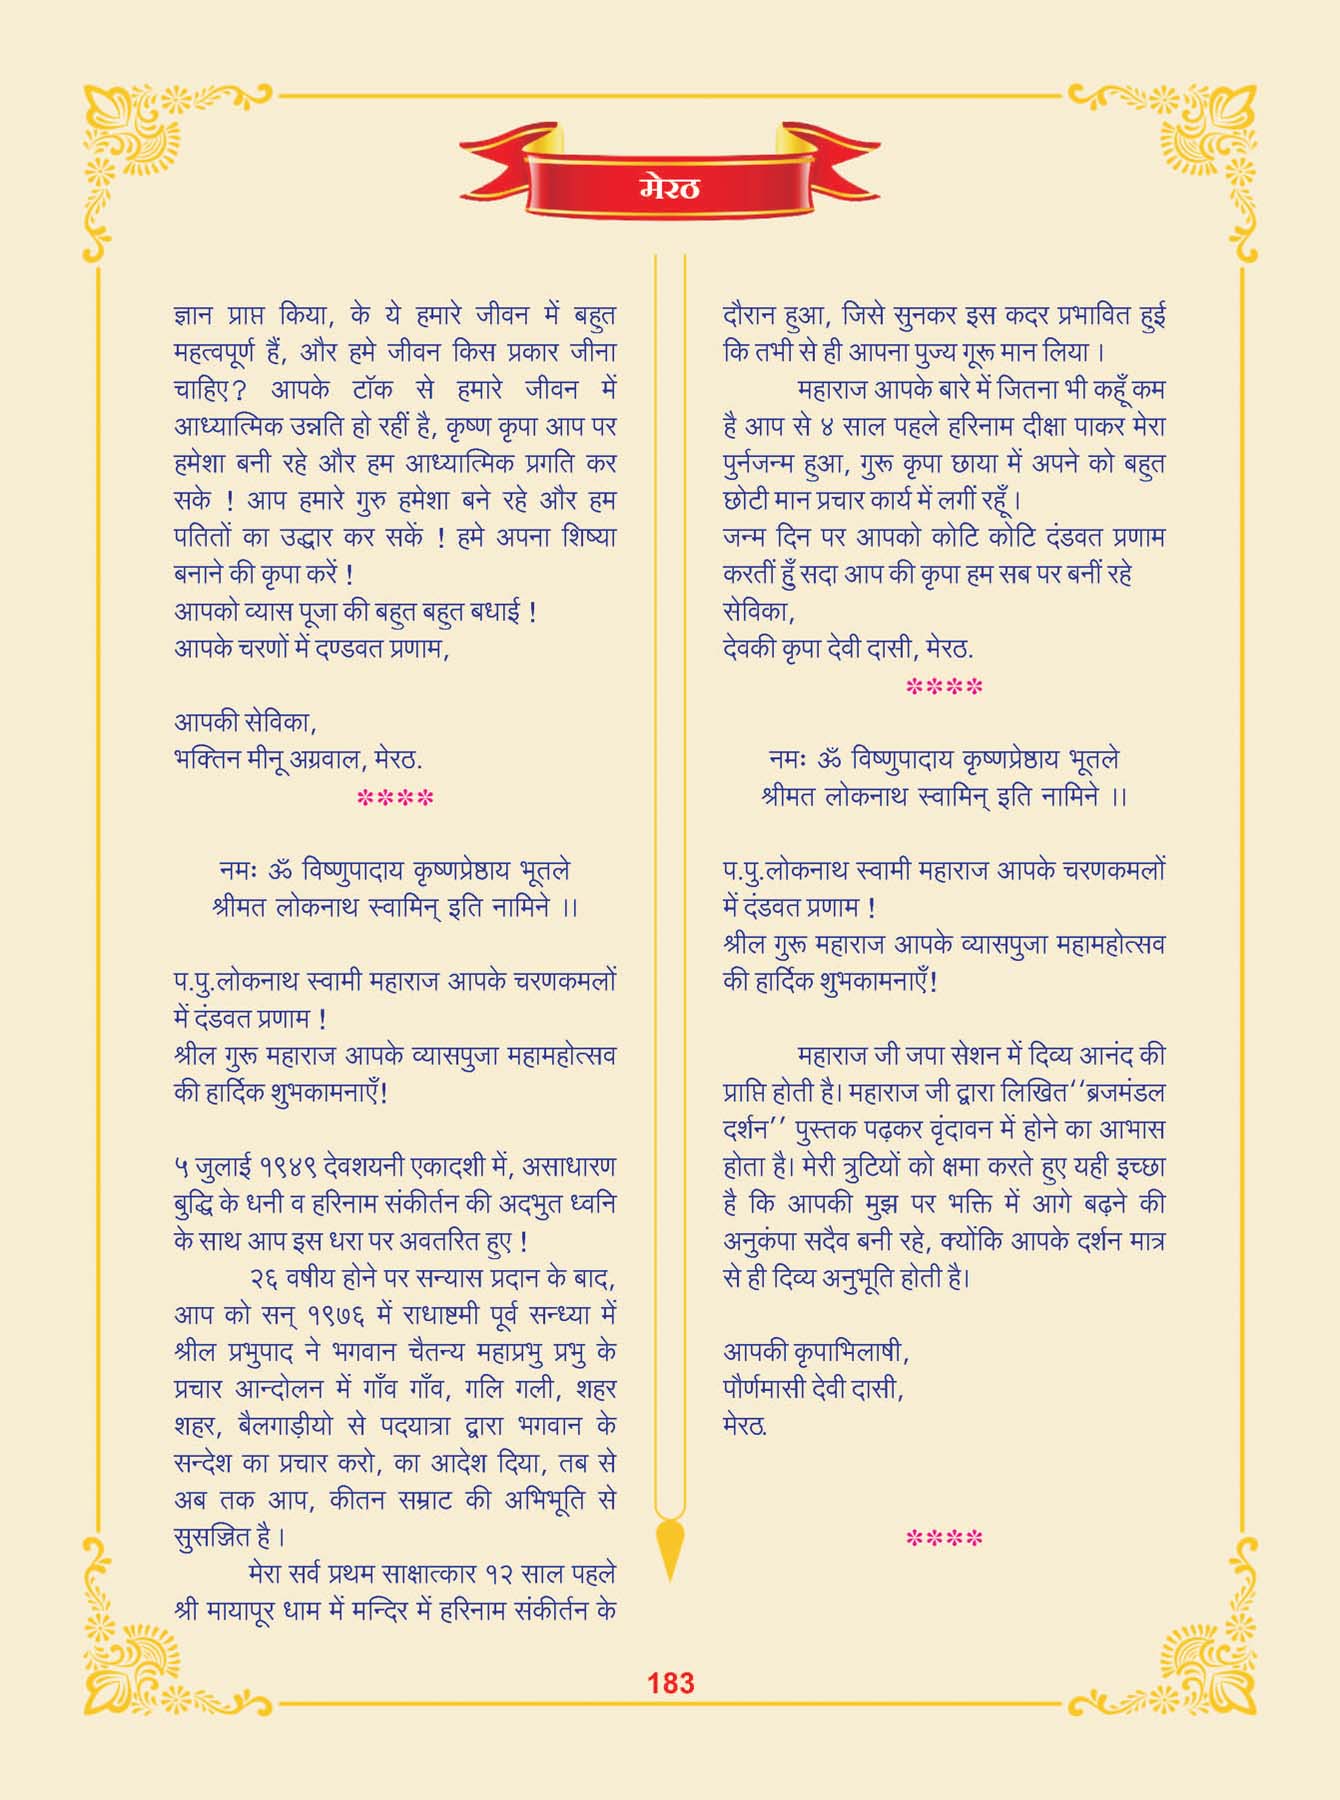 मेरठ
ज्ञान प्राप्त किया, के ये हमारे जीवन में बहुत
महत्वपूर्ण हैं, और हमे जीवन किस प्रकार जीना
चाहिए? आपके टॉक से हमारे जीवन में
आध्यात्मिक उन्नति हो रहीं है, कृष्ण कृपा आप पर
हमेशा बनी रहे और हम आध्यात्मिक प्रगति कर
सके ! आप हमारे गुरु हमेशा बने रहे और हम
पतितों का उद्धार कर सकें ! हमे अपना शिष्या
बनाने की कृपा करें !
आपको व्यास पूजा की बहुत बहुत बधाई !
आपके चरणों में दण्डवत प्रणाम,
आपकी सेविका,
भक्तिन मीनू अग्रवाल, मेरठ.
****
नमः ॐ विष्णुपादाय कृष्णप्रेष्ठाय भूतले
श्रीमत लोकनाथ स्वामिन् इति नामिने ।।
प.पु.लोकनाथ स्वामी महाराज आपके चरणकमलों
में दंडवत प्रणाम !
श्रील गुरू महाराज आपके व्यासपुजा महामहोत्सव
की हार्दिक शुभकामनाएँ!
५ जुलाई १९४९ देवशयनी एकादशी में, असाधारण
बुद्धि के धनी व हरिनाम संकीर्तन की अदभुत ध्वनि
के साथ आप इस धरा पर अवतरित हुए !
२६ वषीय होने पर सन्यास प्रदान के बाद,
आप को सन् १९७६ में राधाष्टमी पूर्व सन्ध्या में
श्रील प्रभुपाद ने भगवान चैतन्य महाप्रभु प्रभु के
प्रचार आन्दोलन में गाँव गाँव, गलि गली, शहर
शहर, बैलगाड़ीयो से पदयात्रा द्वारा भगवान के
सन्देश का प्रचार करो, का आदेश दिया, तब से
अब तक आप, कीतन सम्राट की अभिभूति से
सुसज्जित है ।
मेरा सर्व प्रथम साक्षात्कार १२ साल पहले
श्री मायापूर धाम में मन्दिर में हरिनाम संकीर्तन के
दौरान हुआ, जिसे सुनकर इस कदर प्रभावित हुई
कि तभी से ही आपना पुज्य गूरू मान लिया ।
महाराज आपके बारे में जितना भी कहूँ कम
है आप से ४ साल पहले हरिनाम दीक्षा पाकर मेरा
पुर्नजन्म हुआ, गुरू कृपा छाया में अपने को बहुत
छोटी मान प्रचार कार्य में लगीं रहूँ ।
जन्म दिन पर आपको कोटि कोटि दंडवत प्रणाम
करतीं हुँ सदा आप की कृपा हम सब पर बनीं रहे
सेविका,
देवकी कृपा देवी दासी, मेरठ.
****
नमः ॐ विष्णुपादाय कृष्णप्रेष्ठाय भूतले
श्रीमत लोकनाथ स्वामिन् इति नामिने ।।
प.पु.लोकनाथ स्वामी महाराज आपके चरणकमलों
में दंडवत प्रणाम !
श्रील गुरू महाराज आपके व्यासपुजा महामहोत्सव
की हार्दिक शुभकामनाएँ!
महाराज जी जपा सेशन में दिव्य आनंद की
प्राप्ति होती है। महाराज जी द्वारा लिखित‘‘ब्रजमंडल
दर्शन’’ पुस्तक पढ़कर वृंदावन में होने का आभास
होता है। मेरी त्रुटियों को क्षमा करते हुए यही इच्छा
है कि आपकी मुझ पर भक्ति में आगे बढ़ने की
अनुकंपा सदैव बनी रहे, क्योंकि आपके दर्शन मात्र
से ही दिव्य अनुभूति होती है।
आपकी कृपाभिलाषी,
पौर्णमासी देवी दासी,
मेरठ.
****
183